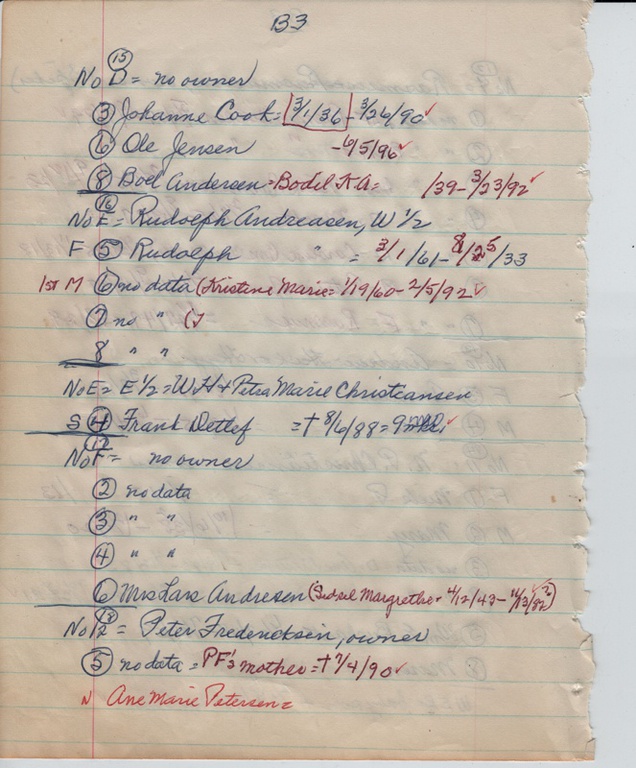 B3
15
No D = no owner
③ Johanne Cook = 3/1/36 - 3/26/90 ✓
⑥ Ole Jensen - 6/5/96 ✓
⑧ Boel Andersen = Bodil KA = /39 - 3/23/92 ✓
16
No E = Rudolph Andreasen, W 1/2
F ⑤ Rudolph " = 3/1/61 - 8/25/33
1st M ⑥ no data (Kristine Marie = 1/19/60 - 2/5/92 ✓
⑦ no " (
8 " "
No E = E 1/2 = W H + Petra Marie Christiansen
S ④ Frank Detlef = † 8/6/88 = 9 ✓
17
No F = no owner
② no data
③ " "
④ " "
⑥ Mrs Lars Andresen ( Margrethe 4/12/43 -
18
No 12 = Peter Fredericksen, owner
⑤ no data = PF's mother = † 7/4/90 ✓
N Ane Marie Petersen =